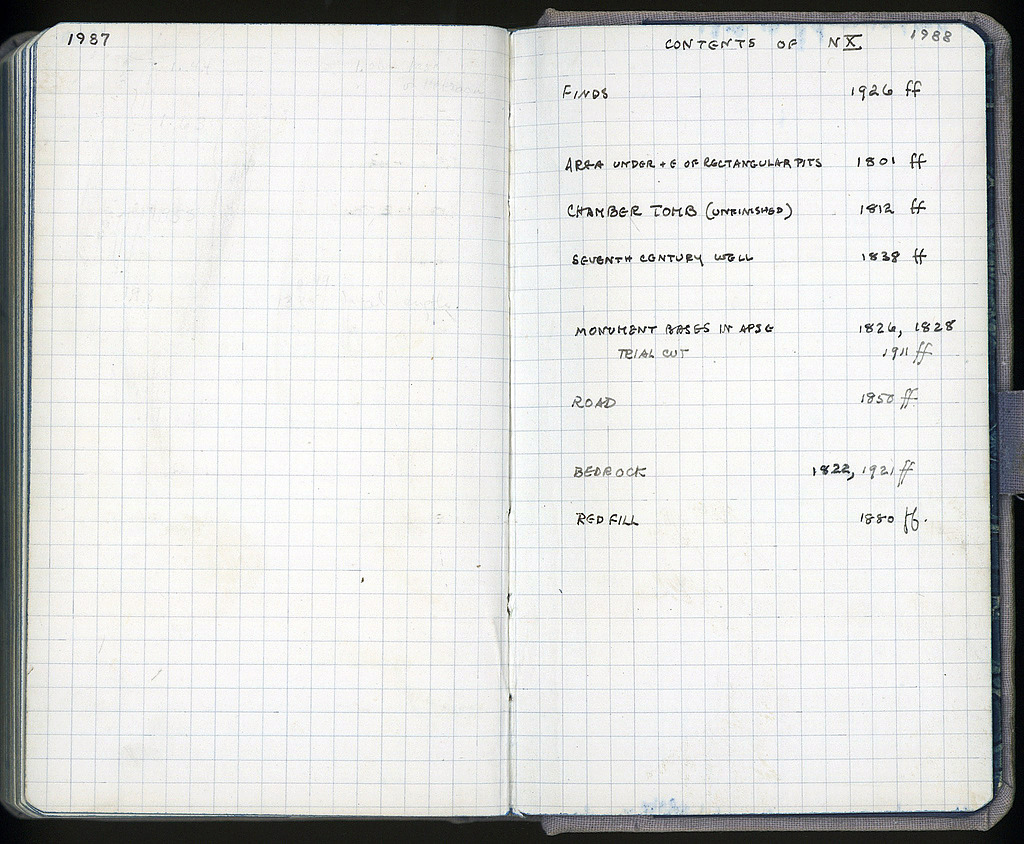 1987
1988
CONTENTS OF NX
FINDS 1926 ff
AREA UNDER + E OF RECTANGULAR PITS 1801 ff
CHAMBER TOMB (UNFINISHED) 1812 ff
SEVENTH CENTURY WELL 1838 ff
MONUMENT BASES IN APSE 1826, 1828
TRIAL CUT 1911 ff
ROAD 1850 ff
BEDROCK 1822, 1921 ff
RED FILL 1880 ff.